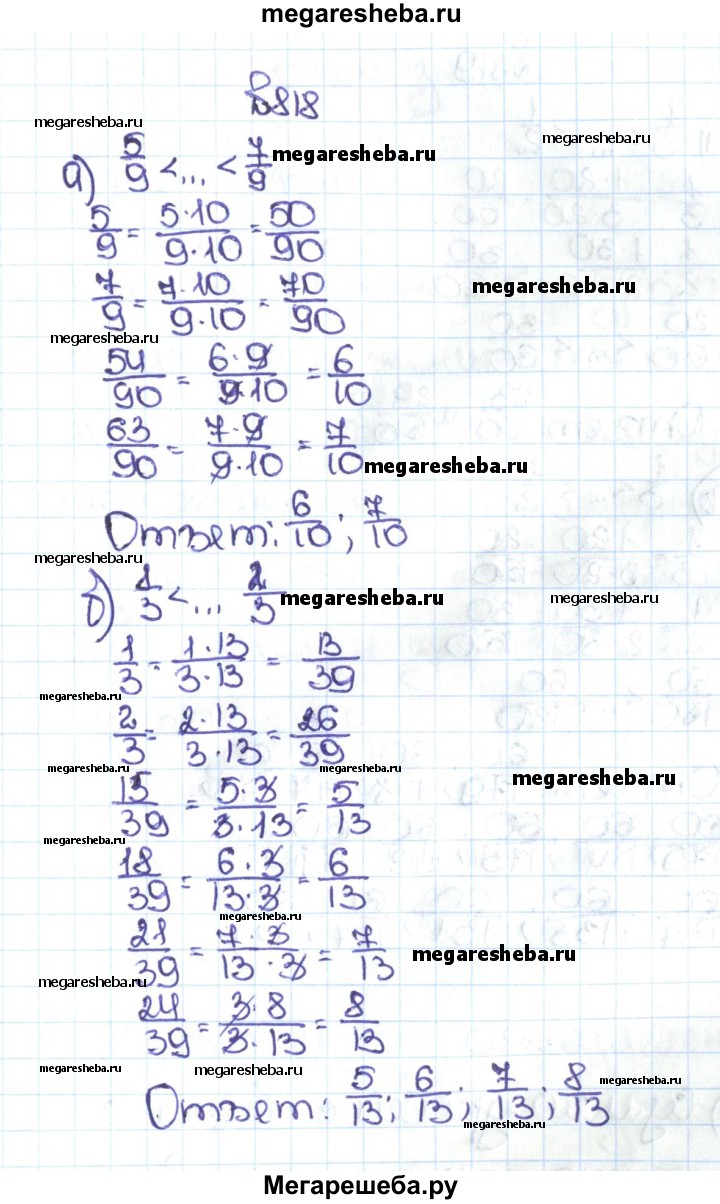 megaresheba.ru
№818
megaresheba.ru
megaresheba.ru
а) 5/9 < ... < 7/9 megaresheba.ru
5/9 = 5·10/9·10 = 50/90
7/9 = 7·10/9·10 = 70/90 megaresheba.ru
megaresheba.ru
54/90 = 6·9/9·10 = 6/10
63/90 = 7·9/9·10 = 7/10 megaresheba.ru
Ответ: 6/10; 7/10
megaresheba.ru
б) 1/3 < ... 2/3 megaresheba.ru megaresheba.ru
1/3 = 1·13/3·13 = 13/39
megaresheba.ru
2/3 = 2·13/3·13 = 26/39
megaresheba.ru megaresheba.ru megaresheba.ru
15/39 = 5·3/3·13 = 5/13
megaresheba.ru
18/39 = 6·3/13·3 = 6/13
megaresheba.ru
21/39 = 7·3/13·3 = 7/13 megaresheba.ru
megaresheba.ru megaresheba.ru
24/39 = 3·8/3·13 = 8/13
megaresheba.ru megaresheba.ru megaresheba.ru
Ответ: 5/13; 6/13; 7/13; 8/13
megaresheba.ru
Мегарешеба.ру